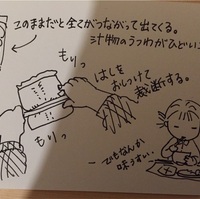 このままだと全てがつながって出てくる。
汁物のうつわがひどい
もりっ
はしを
おしつけて
裁断する。
もりっ
でもなんか
味うすい…